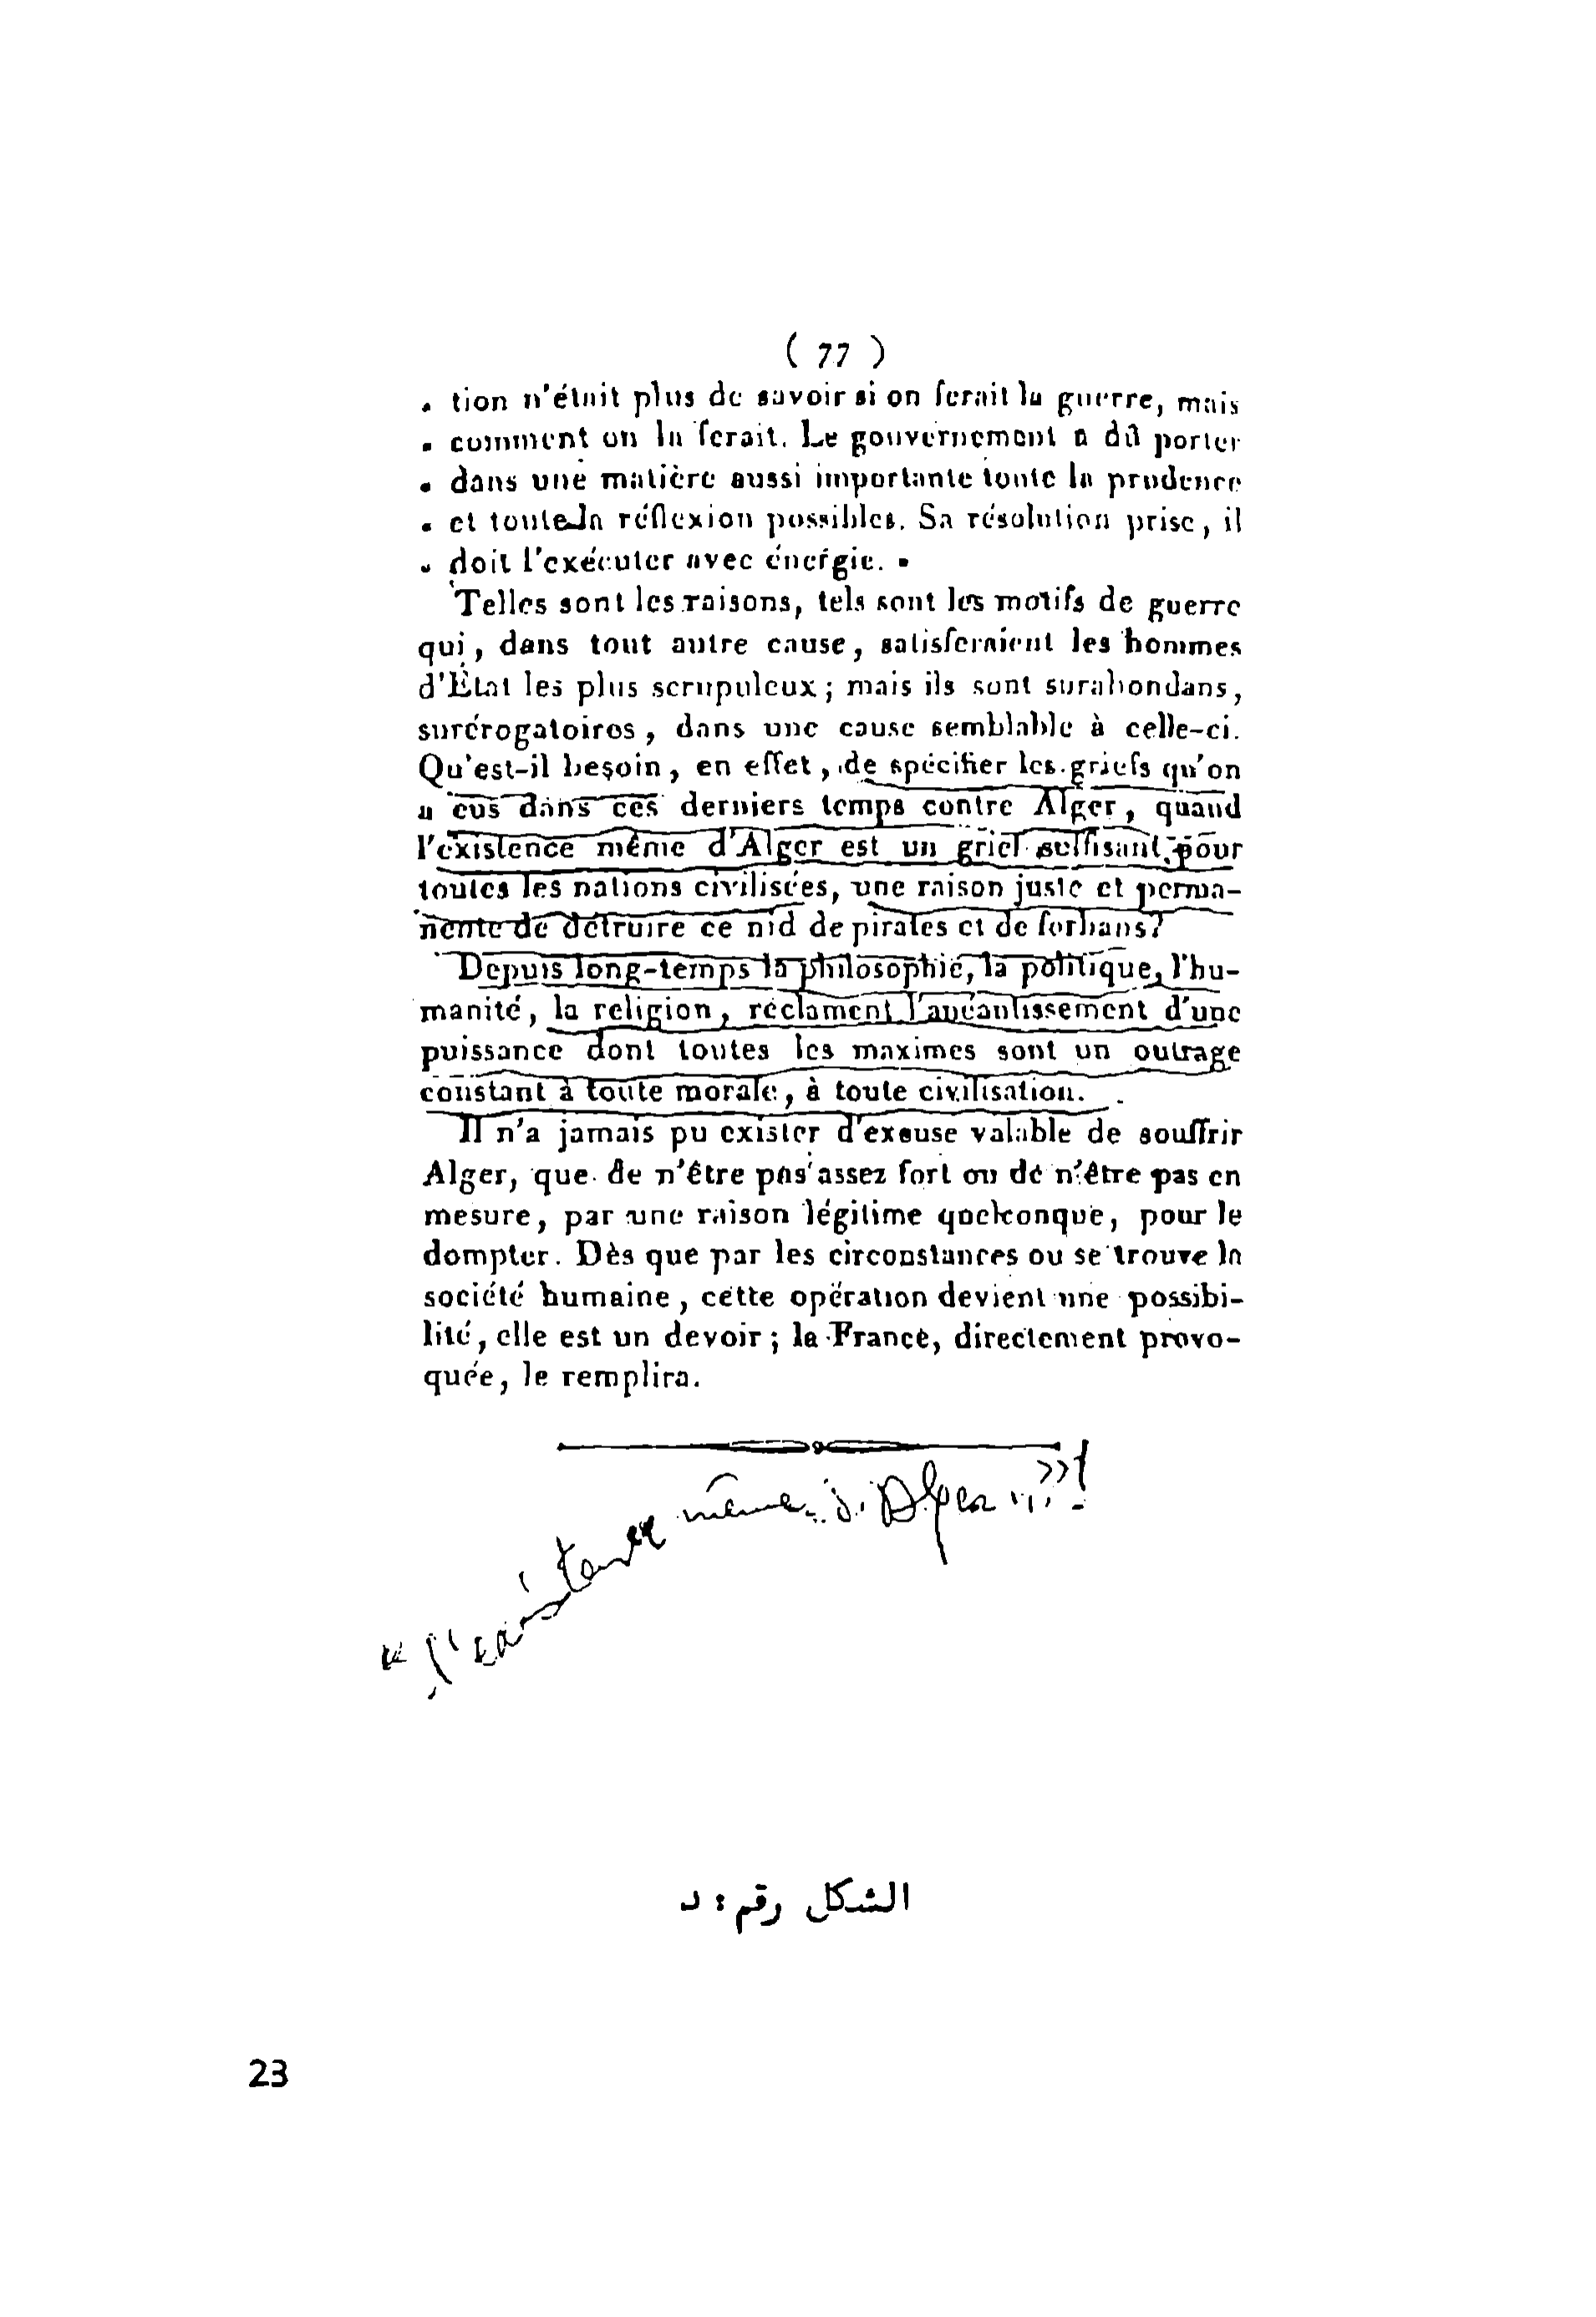 ( 77 )
» tion n'était plus de savoir si on ferait la guerre, mais
» comment on la ferait. Le gouvernement a dû porter
» dans une matière aussi importante toute la prudence
» et toute la réflexion possibles. Sa résolution prise, il
» doit l'exécuter avec énergie. »
Telles sont les raisons, tels sont les motifs de guerre
qui, dans tout autre cause, satisferaient les hommes
d'État les plus scrupuleux; mais ils sont surabondans,
surérogatoires, dans une cause semblable à celle-ci.
Qu'est-il besoin, en effet, de spécifier les griefs qu'on
a eus dans ces derniers temps contre Alger, quand
l'existence même d'Alger est un grief suffisant pour
toutes les nations civilisées, une raison juste et perma-
nente de détruire ce nid de pirates et de forbans?
Depuis long-temps la philosophie, la politique, l'hu-
manité, la religion, réclament l'anéantissement d'une
puissance dont toutes les maximes sont un outrage
constant à toute morale, à toute civilisation.
Il n'a jamais pu exister d'excuse valable de souffrir
Alger, que de n'être pas assez fort ou de n'être pas en
mesure, par une raison légitime quelconque, pour le
dompter. Dès que par les circonstances ou se trouve la
société humaine, cette opération devient une possibi-
lité, elle est un devoir; la France, directement provo-
quée, le remplira.
« l'existence même d'Alger ... »!
الشكل رقم : د
23